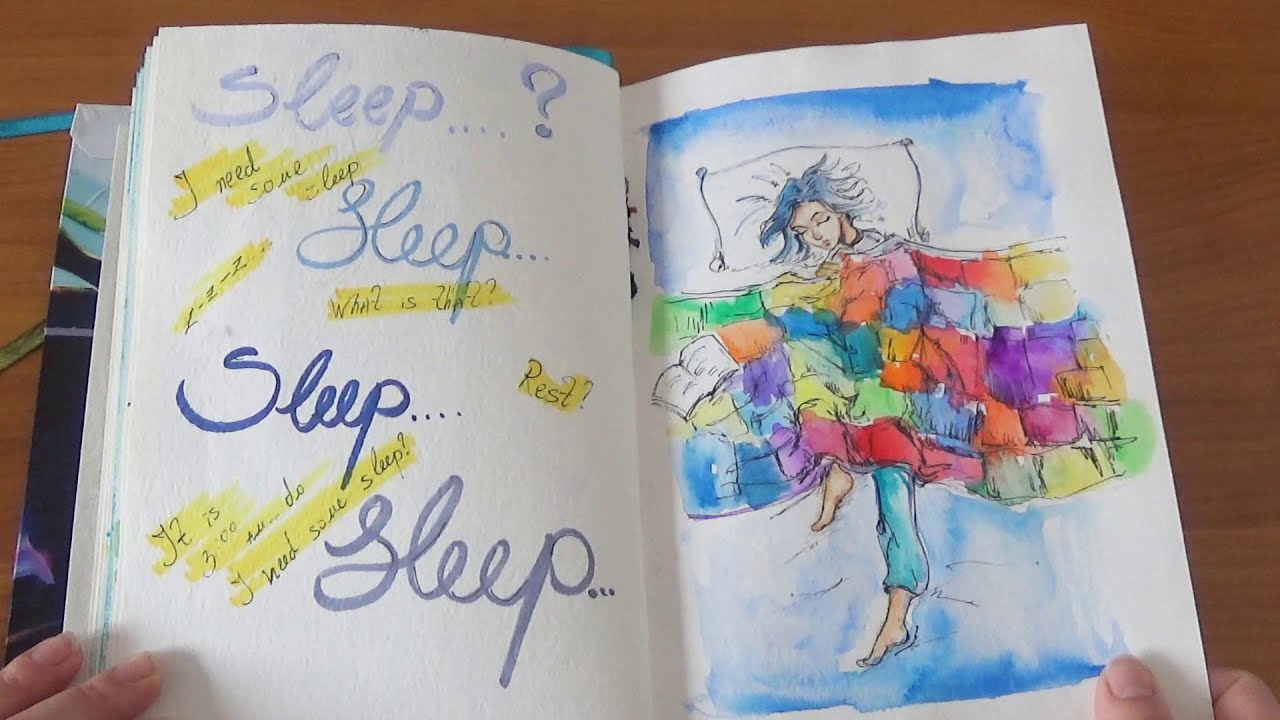 Sleep.... ?
I need
some
sleep
Sleep...
z-z-z.
What is that?
Sleep....
Rest?
It is
3:00 AM... do
I need some sleep?
Sleep...